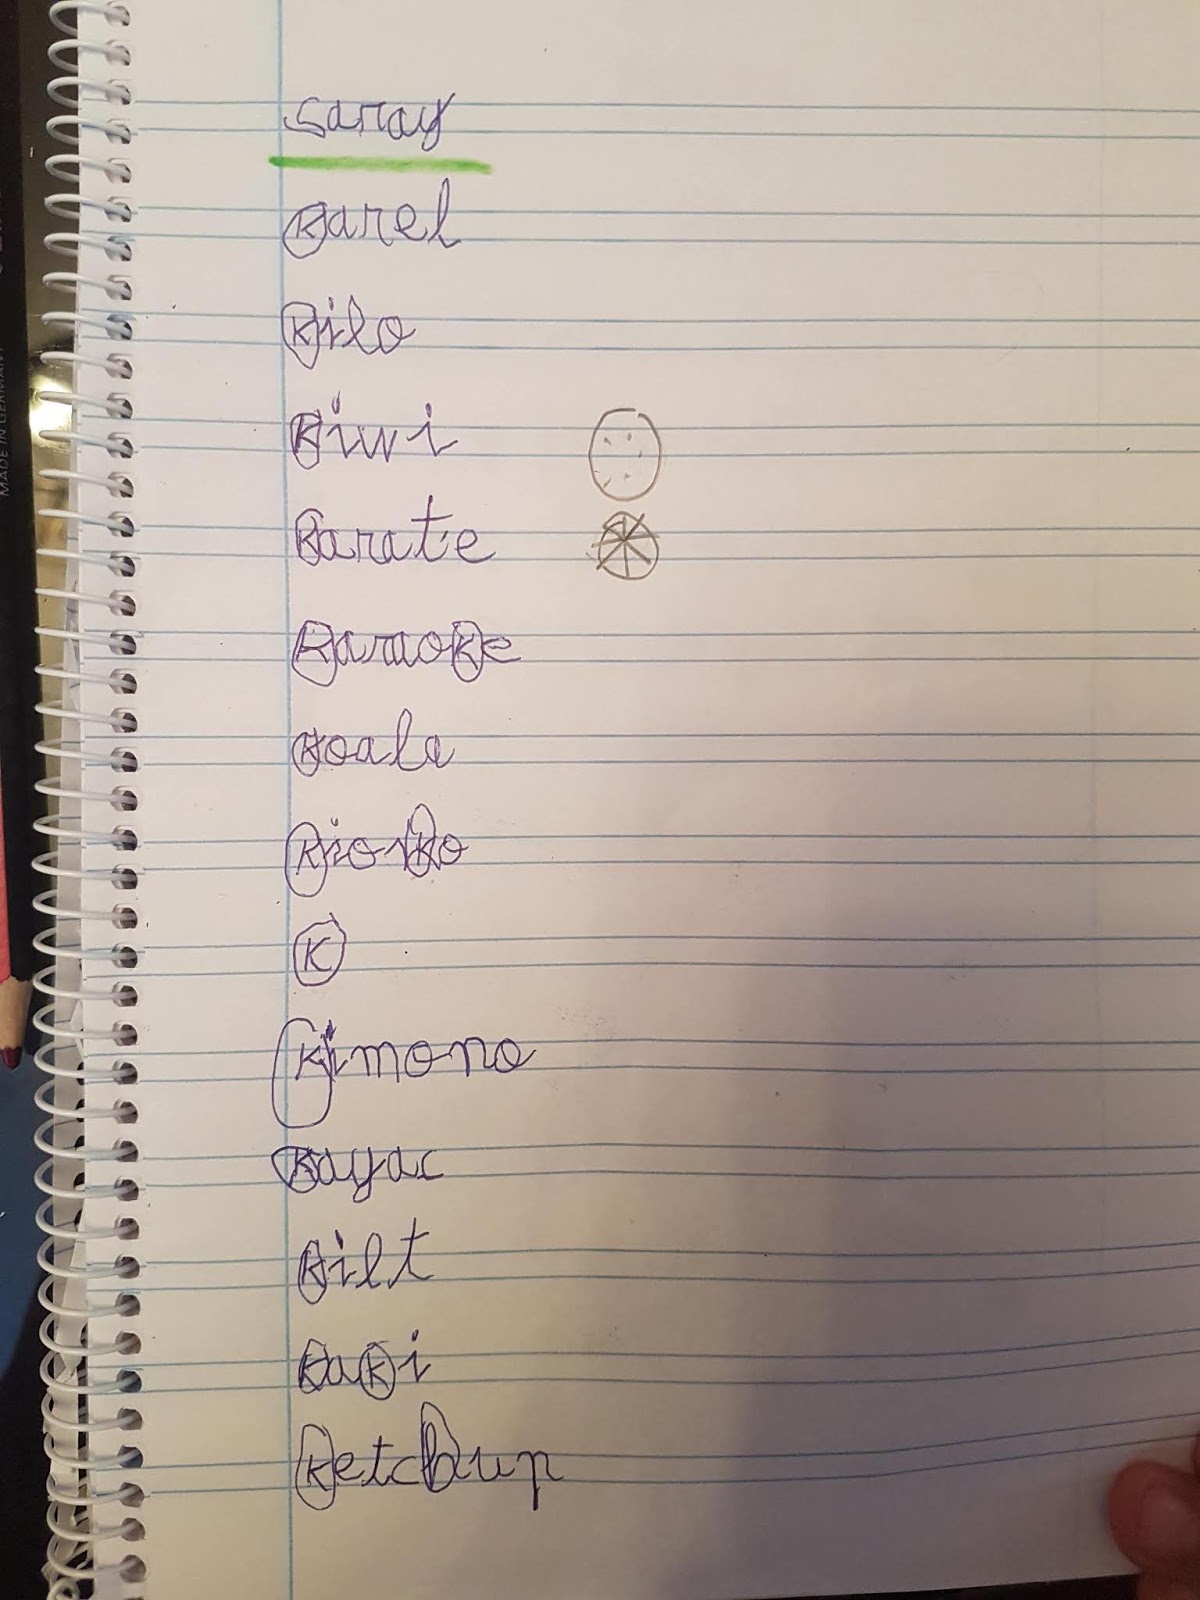 saray
Karel
Kilo
Kiwi
Karate
Karaoke
Koala
Kiosko
K
Kimono
Kayac
Kilt
Kaki
Ketchup
MADE IN GERMANY